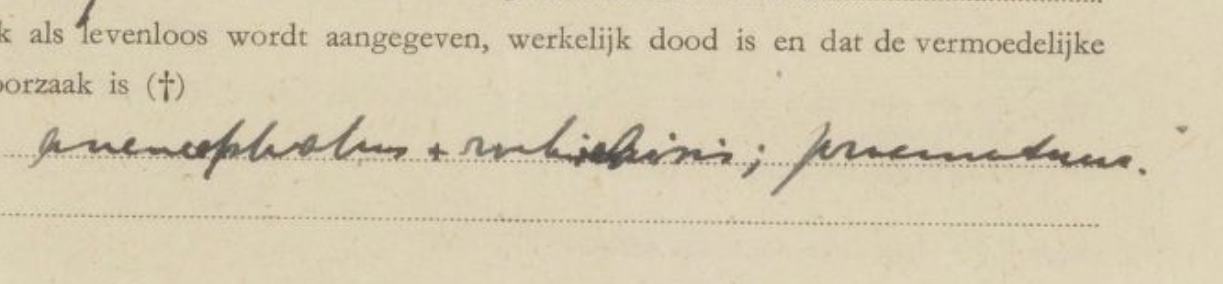 k als levenloos wordt aangegeven, werkelijk dood is en dat de vermoedelijke
oorzaak is (†)
anencephalus + ; praematuus.